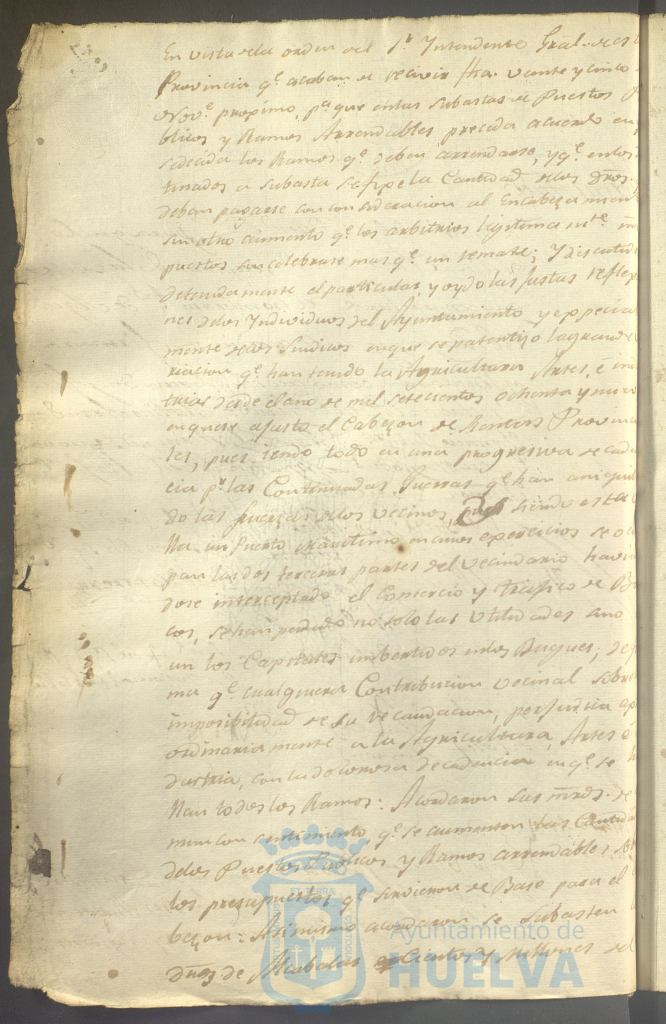 En vista de la orden del Sr. Yntendente Gral. de est
Provincia qe. acaban de recivir fha. veinte y cinco
Nove. proximo, pa. que en las subastas de Puestos P
blicos y Ramos Arrendables preceda acuerdo en
se decida los Ramos qe. deban arrendarse, y qe. en los
tinados a subasta se fixe la Cantidad de los Dros.
deban pagarse con consideracion al Encabezamien
sin otro aumento qe. los arbitrios legitimamte. im
puestos sin celebrarse mas qe. un remate; Y discutid
detenidamente el particular, y oydo las justas refle
nes de los Yndividuos del Ayuntamiento y especia
mente de los Sindicos en que se patentizo la grand
riacion qe. han tenido la Agricultura, Artes, é in
trias desde el año de mil setecientos ochenta y nu
en que se ajustó el Cabezon de Rentas Provin
les, pues siendo todo en una progresiva decad
cia pr. las Continuadas Guerras qe. han aniquil
do las fuerzas de los vecinos, pues siendo esta V
lla un Puerto maritimo en cuios exercicios se o
pan las dos terceras partes del vecindario havi
dose interceptado el Comercio y trafico de B
cos, se han perdido no solo las utilidades sino
un los Capitales imbertidos en los Buques; de
ma qe. cualquiera Contribucion vecinal sobre
imposibilidad de su recaudacion, perjudica e
ordinariamente a la Agricultura, Artes é
dustria, con la dolorosa decadencia en qe. se h
llan todos los Ramos: Acordaron sus mrds. de
mun con sentimiento, qe. se aumenten las Cantida
de los Puestos Publicos y Ramos arrendables
los presupuestos qe. sirvieron de Baso para el
bezon: Asimismo acordaron se subasten
Dros de Alcabalas Cientos y Millones del
Ayuntamiento de
HUELVA